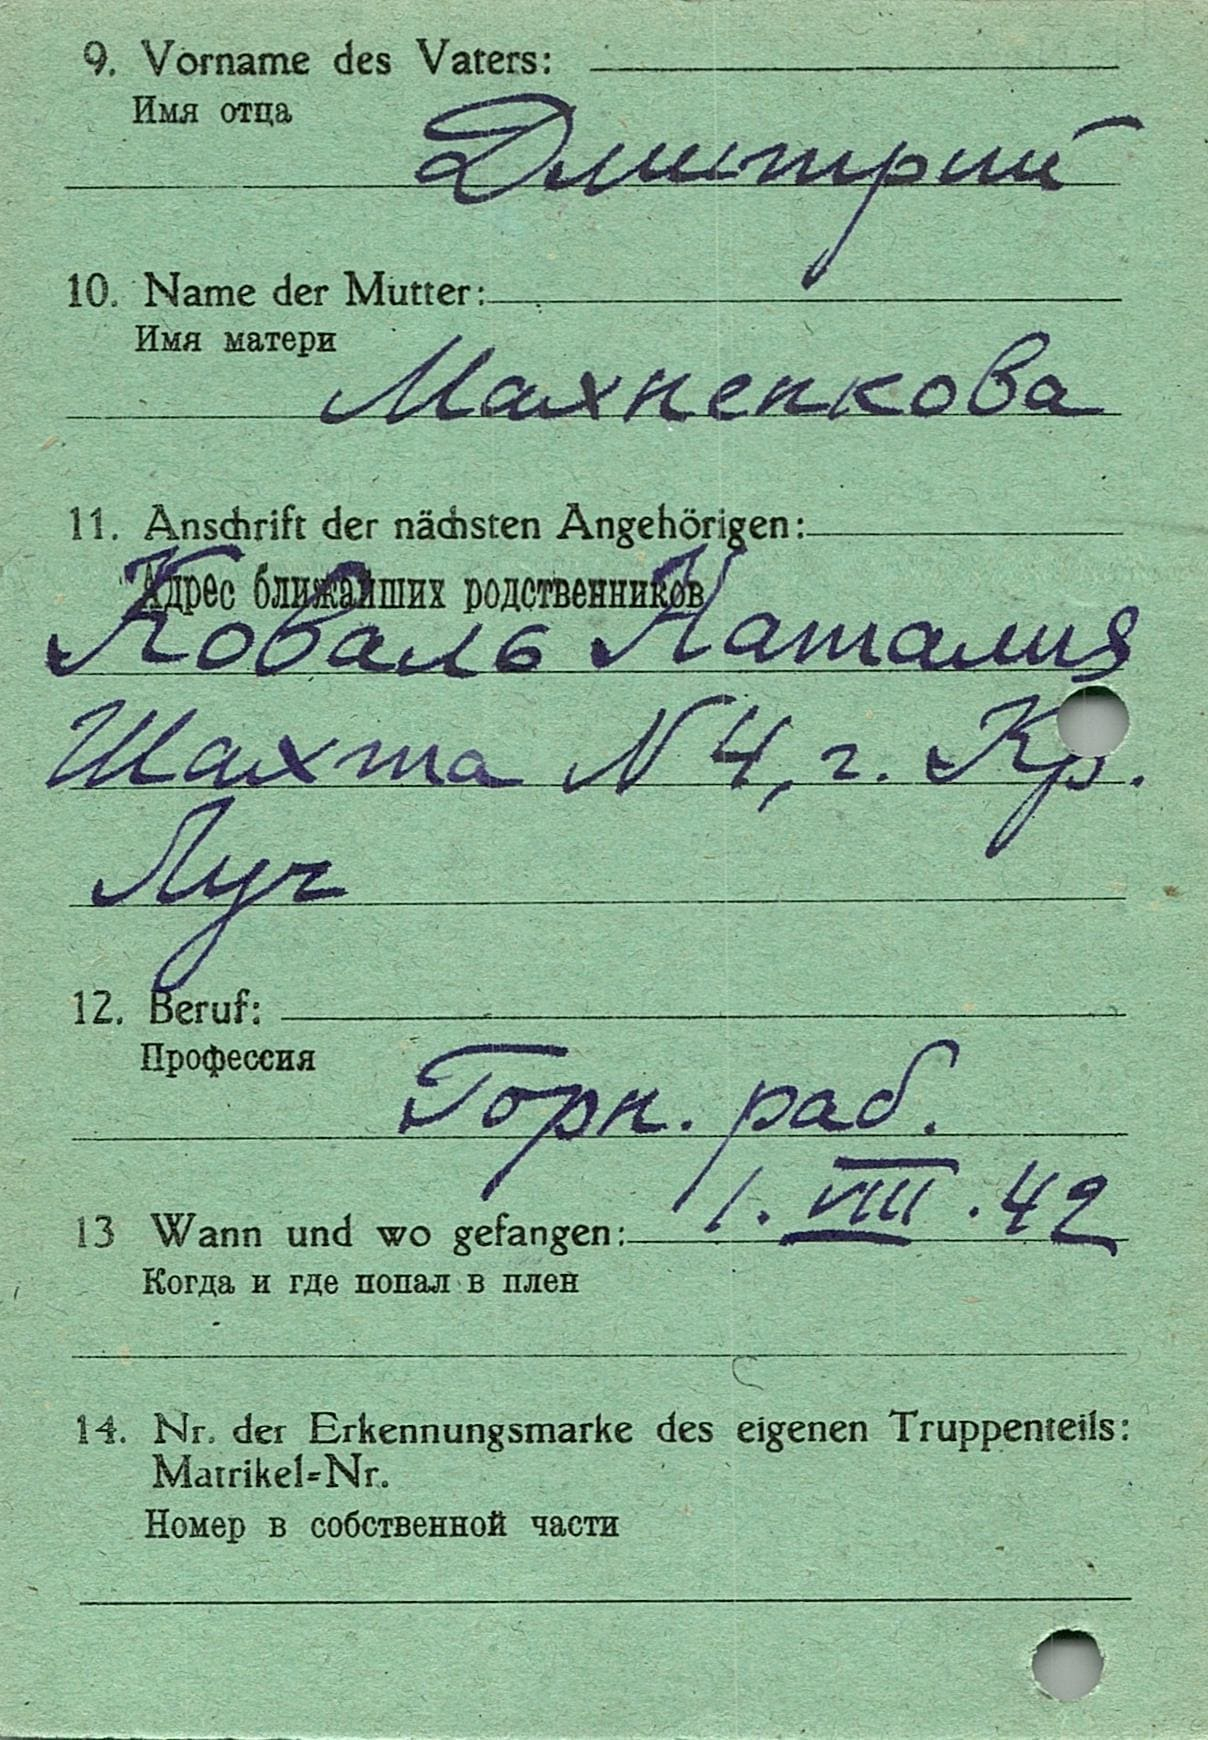 9. Vorname des Vaters:
Имя отца
Дмитрий
10. Name der Mutter:
Имя матери
Махненкова
11. Anschrift der nächsten Angehörigen:
Адрес ближайших родственников
Коваль Наталия
Шахта N 4, г. Кр.
Луч
12. Beruf:
Профессия
Горн. раб.
13 Wann und wo gefangen: 1. VIII. 42
Когда и где попал в плен
14. Nr. der Erkennungsmarke des eigenen Truppenteils:
Matrikel-Nr.
Номер в собственной части